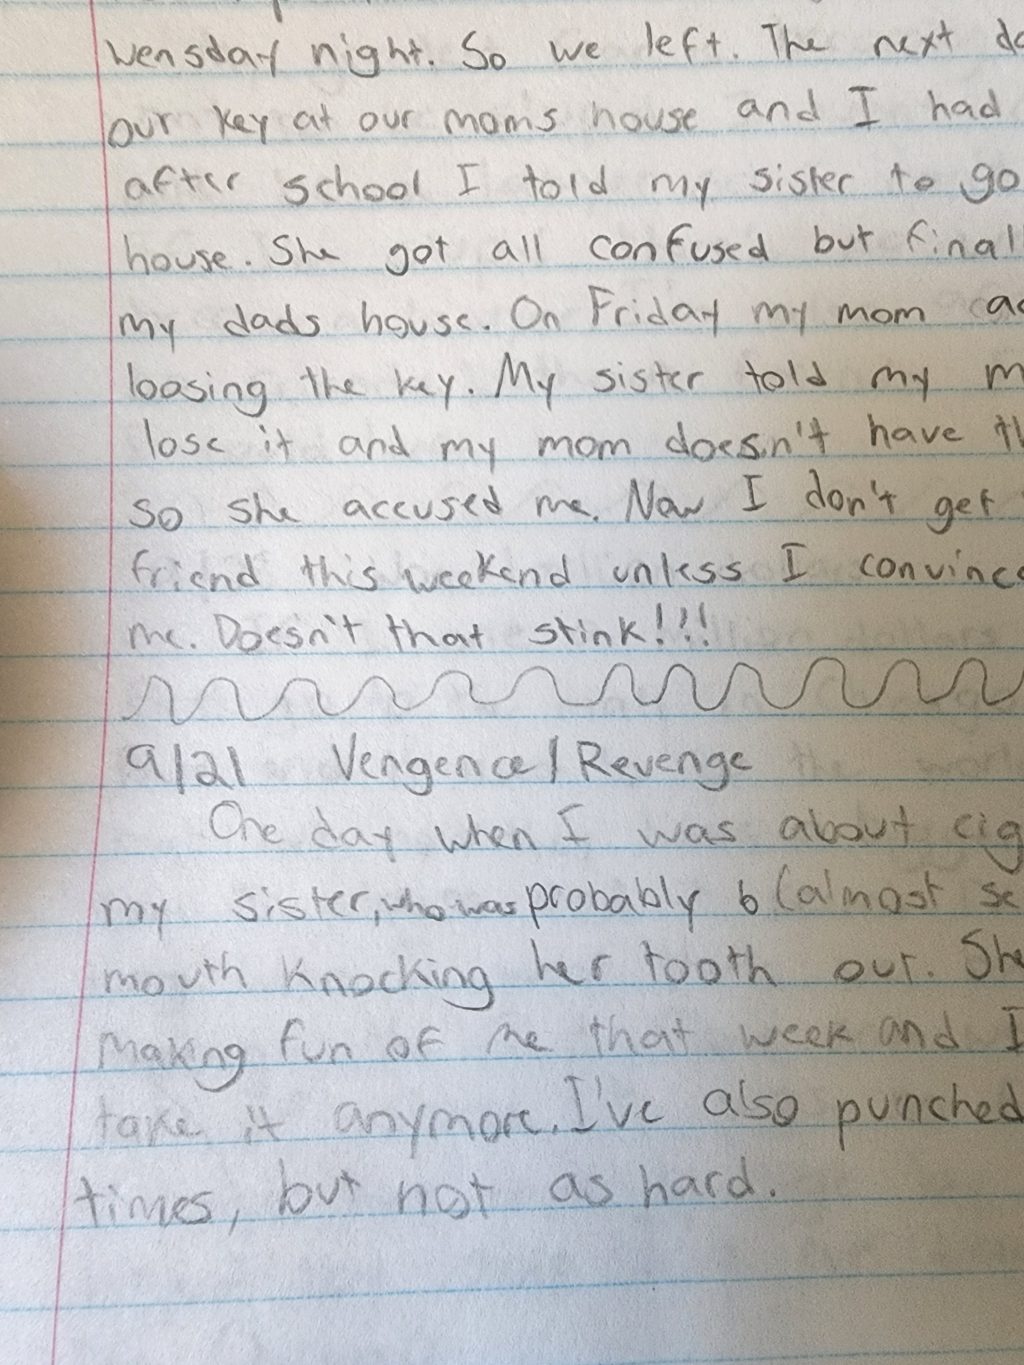 Wensday night. So we left. The next da
our key at our moms house and I had
after school I told my sister to go
house. She got all confused but final
my dads house. On Friday my mom ac
loosing the key. My sister told my m
lose it and my mom doesn't have th
so she accused me. Now I don't get
friend this weekend unless I convinc
me. Doesn't that stink!!!
9/21 Vengence/Revenge
One day when I was about eig
my sister, who was probably 6 (almost se
mouth knocking her tooth out. She
making fun of me that week and I
take it anymore. I've also punched
times, but not as hard.